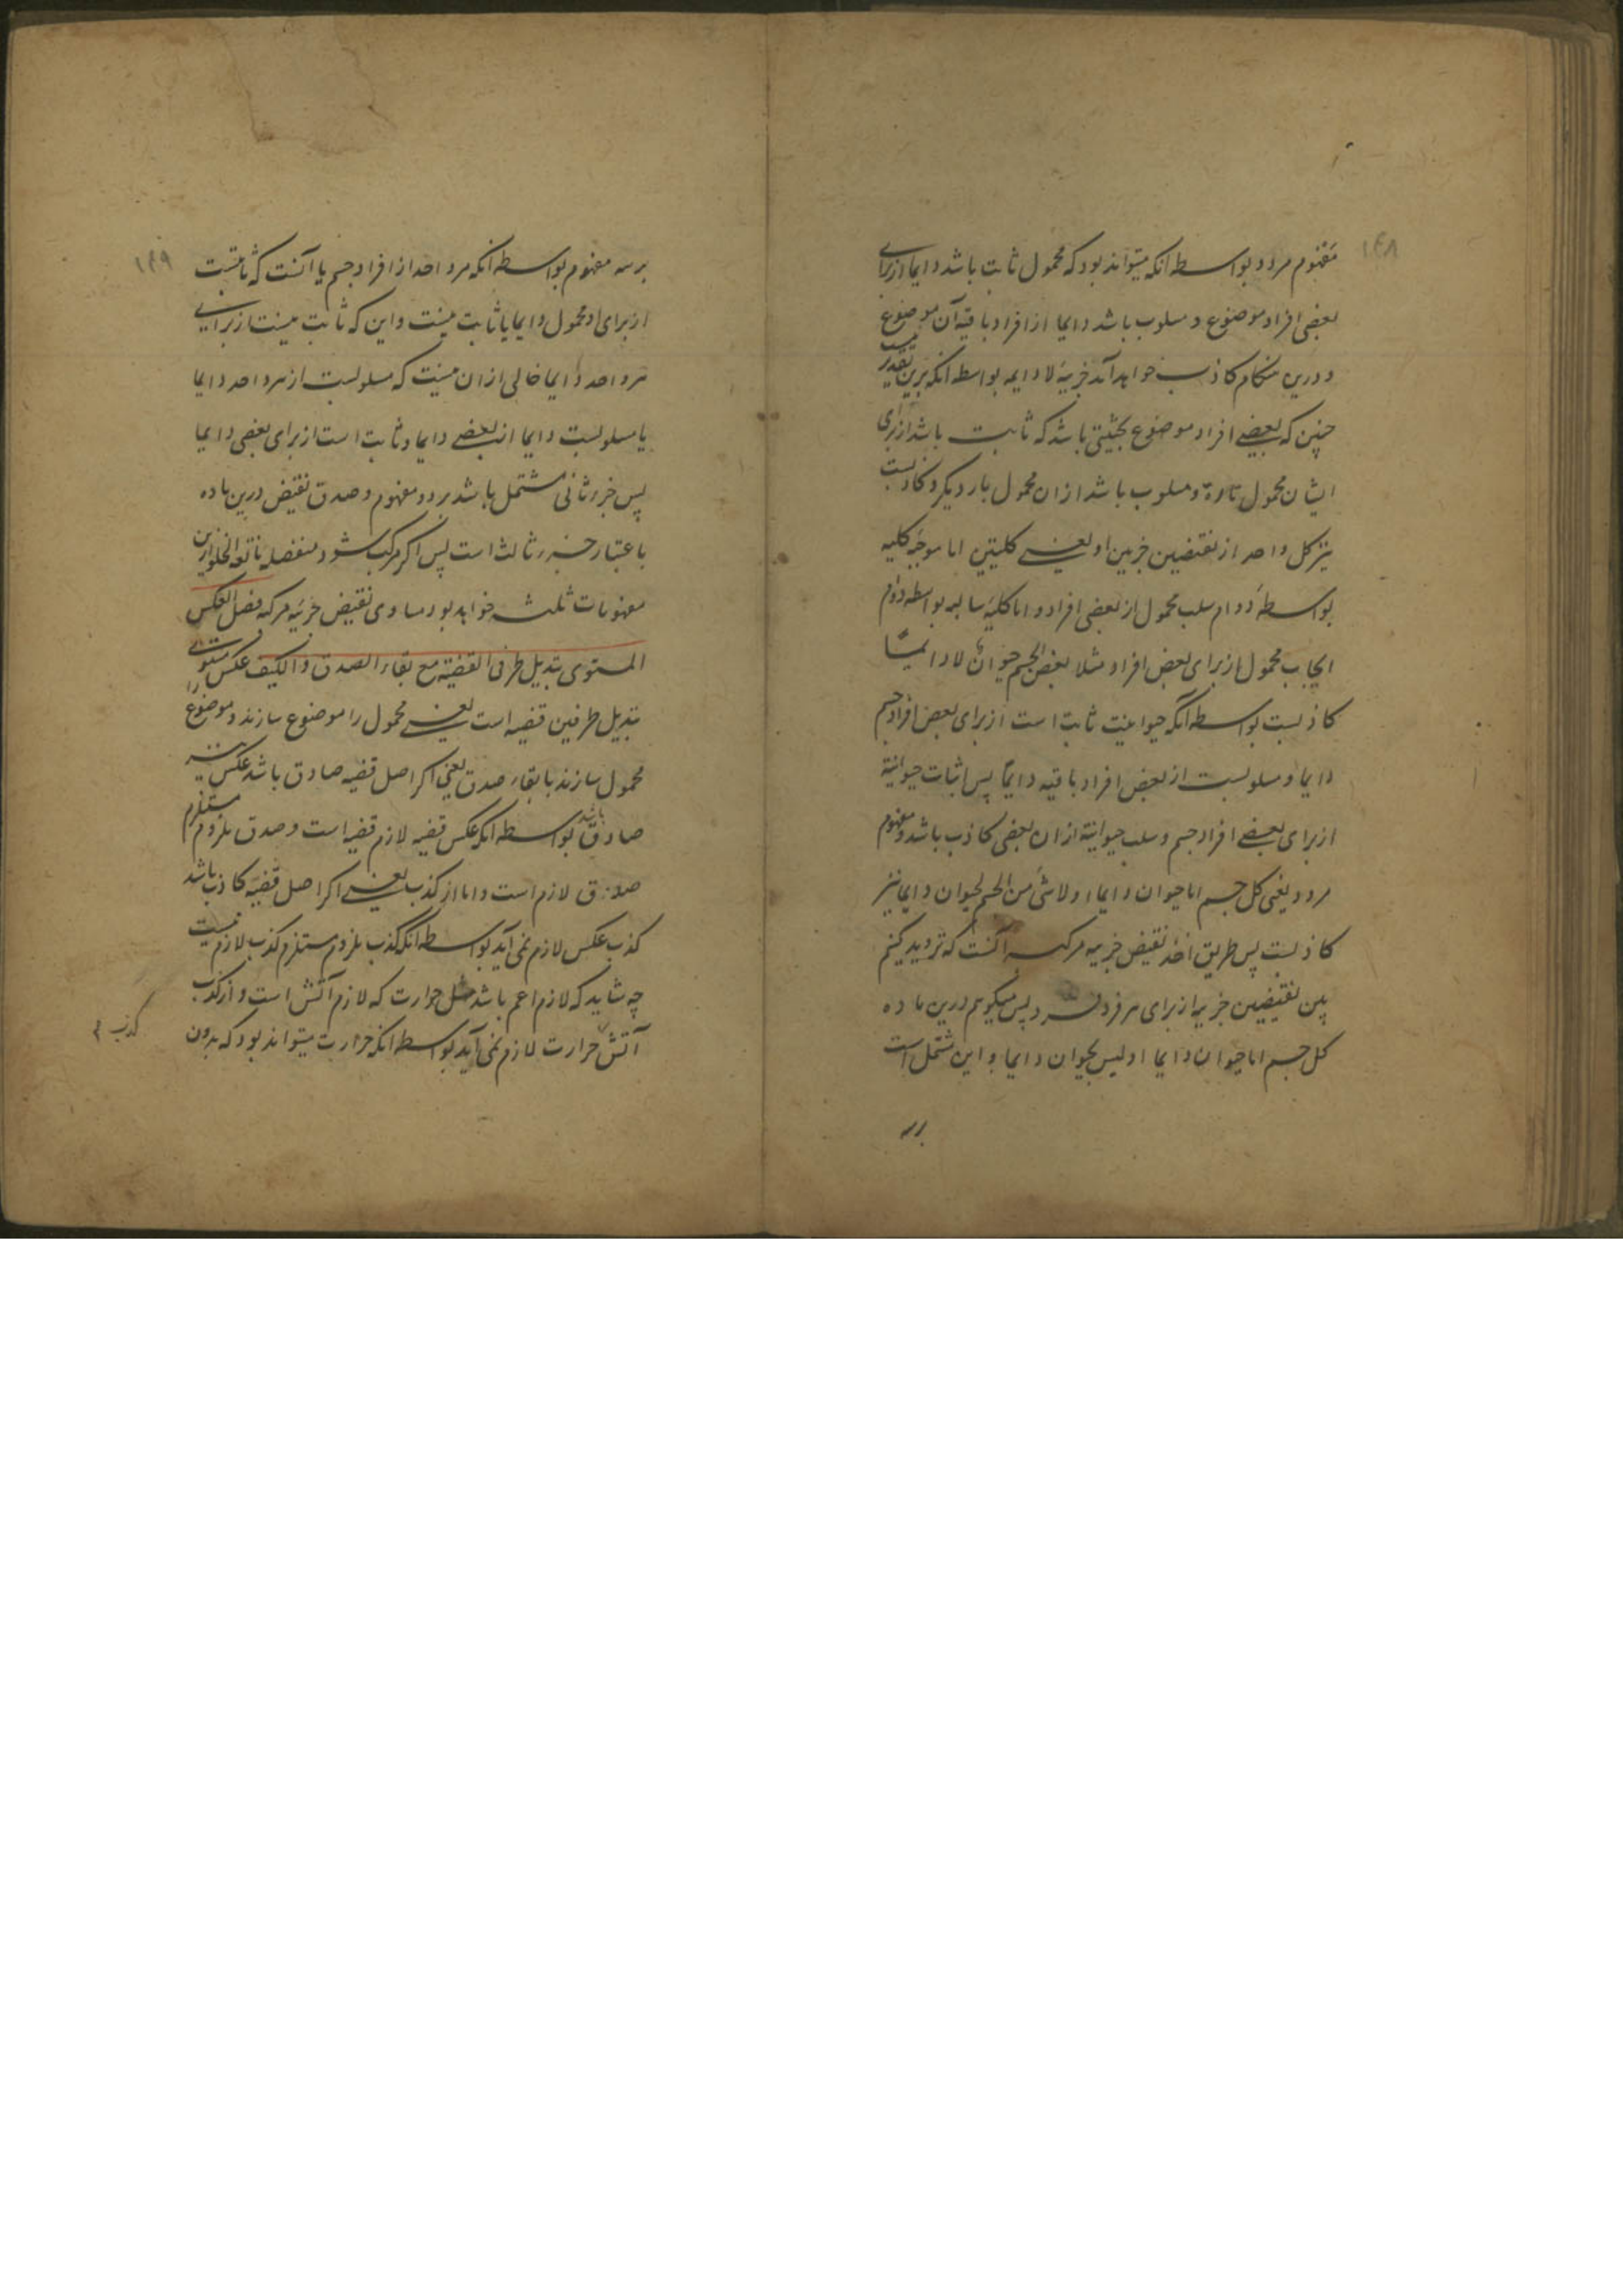 ۱۴۸
مفهوم مردد بواسطه انکه میتواند بود که محمول ثابت باشد دایما از برای
بعضی افراد موضوع و مسلوب باشد دایما از افراد باقیه آن موضوع
و درین هنکام کاذب خواهد آمد جزییهٔ لا دایمه بواسطه انکه برین تقدیر نیست
چنین که بعضی افراد موضوع بحیثیتی باشد که ثابت باشد از برای
ایشان محمول تارة و مسلوب باشد ازان محمول بار دیکر و کاذبست
نیز کل واحد از نقیضین جزیین او یعنی کلیتین اما موجبه کلیه
بواسطهٔ دوام سلب محمول از بعضی افراد و اما کلیهٔ سالبه بواسطه دوام
ایجاب محمول از برای بعض افراد مثلا بعض الجسم حیوانٌ لا دائمًا
کاذبست بواسطه آنکه حیوانیت ثابت است از برای بعض افراد جسم
دایما و مسلوبست از بعض افراد باقیه دایمًا پس اثبات حیوانیة
از برای بعضی افراد جسم و سلب حیوانیة ازان بعضی کاذب باشد و مفهوم
مردد یعنی کل جسم اما حیوان دایما او لا شئ من الجسم بحیوان دایما نیز
کاذبست پس طریق اخذ نقیض جزییه مرکبه آنست که تردید کنیم
بین نقیضین جزیین از برای هر فرد فرد پس میکویم درین ماده
کل جسم اما حیوان دایما او لیس بحیوان دایما و این مشتمل است
بر سه
۱۴۹
بر سه مفهوم بواسطه انکه هر واحد از افراد جسم یا آنست که ثابتست
از برای او محمول دایما یا ثابت نیست و این که ثابت نیست از برای
هر واحد دایما خالی ازان نیست که مسلوبست از هر واحد دایما
یا مسلوبست دایما از بعضی دایما و ثابت است از برای بعضی دایما
پس جزء ثانی مشتمل باشد بر دو مفهوم و صدق نقیض درین ماده
باعتبار جزء ثالث است پس اکر مرکب شود منفصله مانعة الخلو ازین
مفهومات ثلثه خواهد بود مساوی نقیض جزییه مرکبه فصل العکس
المستوی تبدیل طرفی القضیة مع بقاء الصدق و الکیف عکس مستوی
تبدیل طرفین قضیه است یعنی محمول را موضوع سازند و موضوع را
محمول سازند با بقاء صدق یعنی اکر اصل قضیه صادق باشد عکس نیز
صادق باشد بواسطه انکه عکس قضیه لازم قضیه است و صدق ملزوم مستلزم
صدق لازم است و اما از کذب یعنی اکر اصل قضیه کاذب باشد
کذب عکس لازم نمی آید بواسطه انکه کذب ملزوم مستلزم کذب لازم نیست
چه شاید که لازم اعم باشد مثل حرارت که لازم آتش است و از کذب
آتش حرارت لازم نمی آید بواسطه انکه حرارت میتواند بود که بدون
کذب